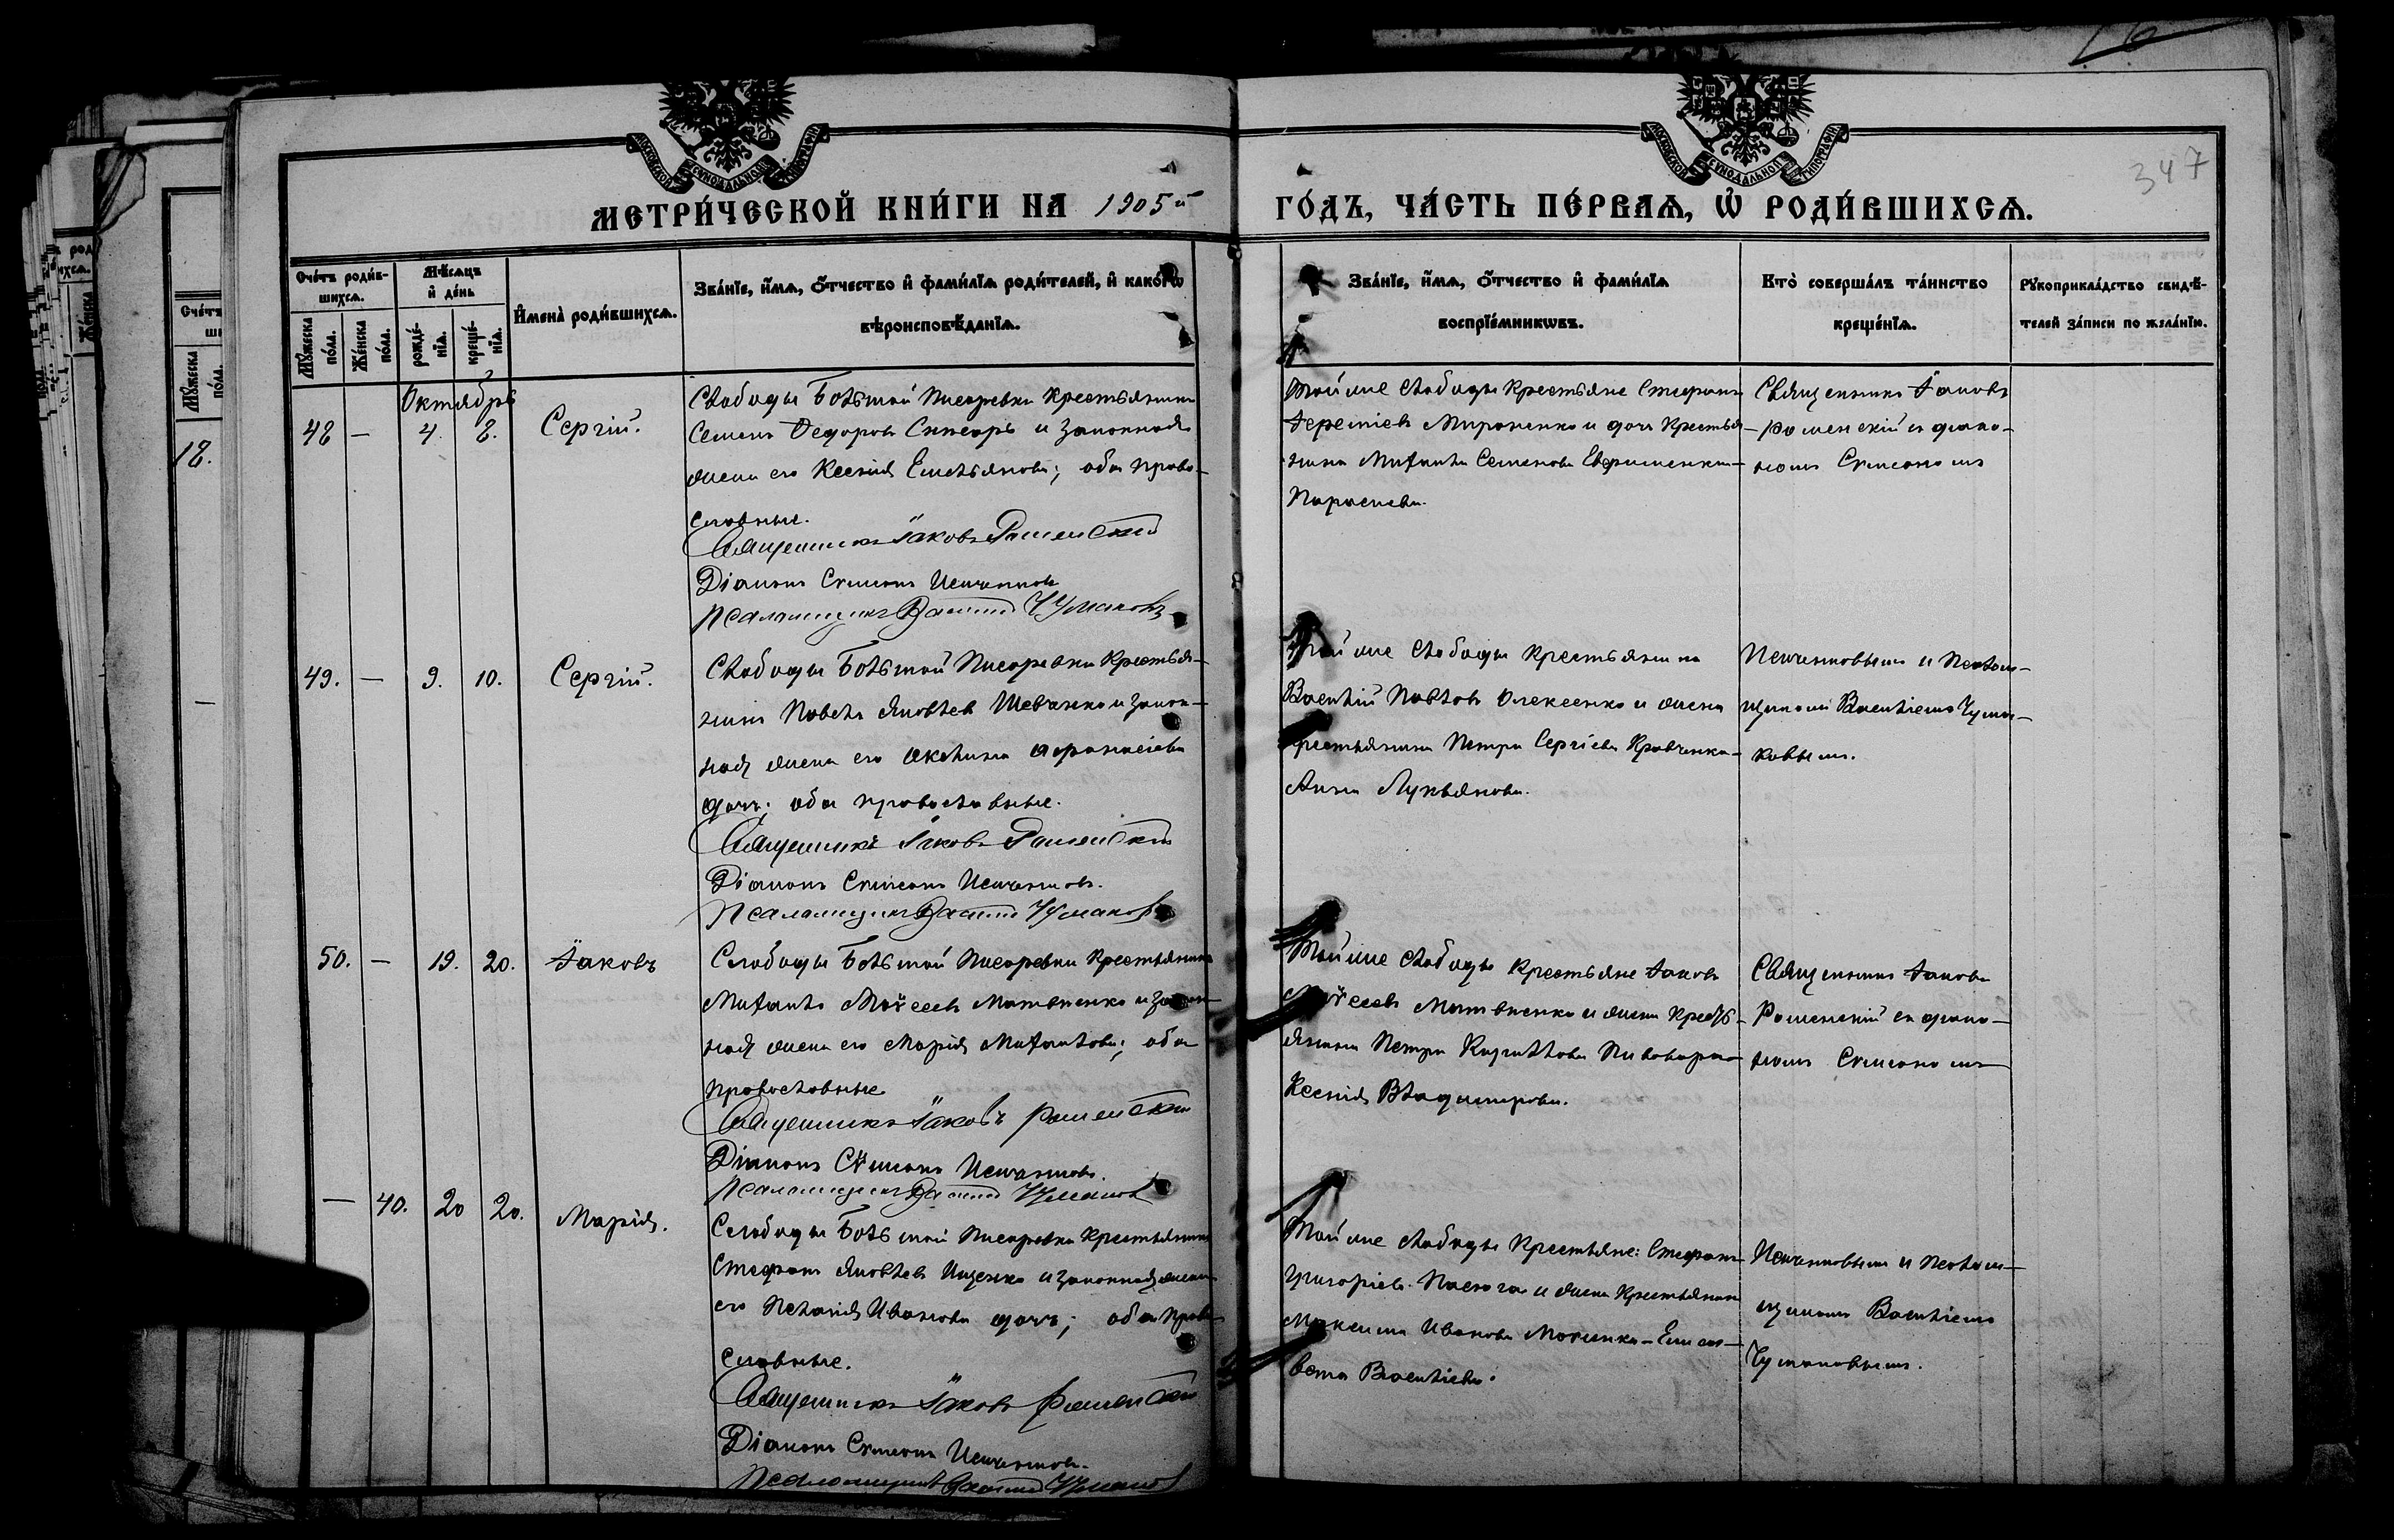 347
МЕТРИ́ЧЕСКОЙ КНИ́ГИ НА 1905й ГО́ДЪ, ЧА́СТЬ ПЕ́РВАѦ, Ѽ РОДИ́ВШИХСѦ.
Сче́тъ роди́в-
шихсѧ.
Мꙋ́жеска по́ла.
Же́нска по́ла.
Мѣ́сѧцъ
и҆ де́нь
рожде́-нїѧ.
креще́-нїѧ.
И҆мена̀ роди́вшихсѧ.
Зва́нїе, и҆́мѧ, ѻ҆́тчество и҆ фами́лїѧ роди́телей, и҆ како́гѡ
вѣроисповѣ́данїѧ.
Зва́нїе, и҆́мѧ, ѻ҆́тчество и҆ фами́лїѧ
воспрїе́мникѡвъ.
Кто̀ соверша́лъ та́инство
креще́нїѧ.
Рꙋкоприкла́дство свидѣ́-
телей за́писи по жела́нїю.
Октябрь
48 — 4. 8. Сергій.
Слободы Большой Писаревки крестьянинъ
Семенъ Ѳедоровъ Снисарь и законная
жена его Ксенія Емельянова; оба право-
славные.
Священникъ Іаковъ Роменскій
Діаконъ Симеонъ
Псаломщикъ Василій Чумаковъ
Той же слободы крестьяне Стефанъ
Іереміевъ Мироненко и дочь крестья-
нина Михаила Семенова Евфименка—
Параскева.
Священникъ Іаковъ
Роменскій съ діако-
номъ Симеономъ
49. — 9. 10. Сергій.
Слободы Большой Писаревки крестья-
нинъ Павелъ Яковлевъ Шевченко и закон-
ная жена его Акилина Аѳанасіева
дочь; оба православные.
Священникъ Іаковъ Роменскій
Діаконъ Симеонъ
Псаломщикъ Василій Чумаковъ
Той же слободы крестьянинъ
Василій Павловъ Олексенко и жена
крестьянина Петра Сергіева Кравченка—
Анна Лукьянова.
и псалом-
щикомъ Василіемъ Чума-
ковымъ.
50. — 19. 20. Іаковъ
Слободы Большой Писаревки крестьянинъ
Михаилъ Моѵсеевъ Матвиенко и закон-
ная жена его Марія Михаилова; оба
православные
Священникъ Іаковъ Роменскій
Діаконъ Сѵмеонъ
Псаломщикъ Василій Чумаковъ
Той же слободы крестьяне Іаковъ
Моѵсеевъ Матвиенко и жена кресть-
янина Петра Кириллова Пивовара—
Ксенія Владимирова.
Священникъ Іаковъ
Роменскій съ діако-
номъ Симеономъ
— 40. 20 20. Марія.
Слободы Большой Писаревки крестьянинъ
Стефанъ Яковлевъ Ищенко и законная жена
его Пелагія Иванова дочь; оба право-
славные.
Священникъ Іаковъ Роменскій
Діаконъ Симеонъ
Псаломщикъ Василій Чумаковъ
Той же слободы крестьяне: Стефанъ
Григоріевъ и жена крестьянина
Максима Иванова — Елиса-
вета Василіева.
и псалом-
щикомъ Василіемъ
Чумаковымъ.